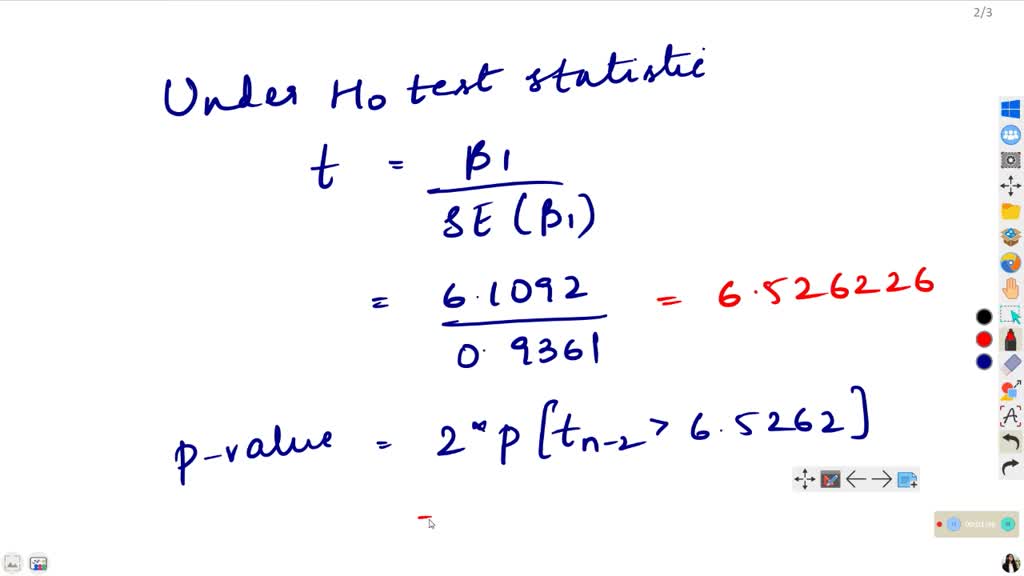 2/3
Under Ho test statistic
t = β1 / SE (β1)
= 6.1092 / 0.9361 = 6.526226
p-value = 2* p [tn-2 > 6.5262]